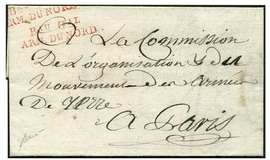 ARM. DU NORD
Bau Gal
ARM. DU NORD
A La Commission
De L'organisation & du
Mouvement des Armées
De Terre
A Paris